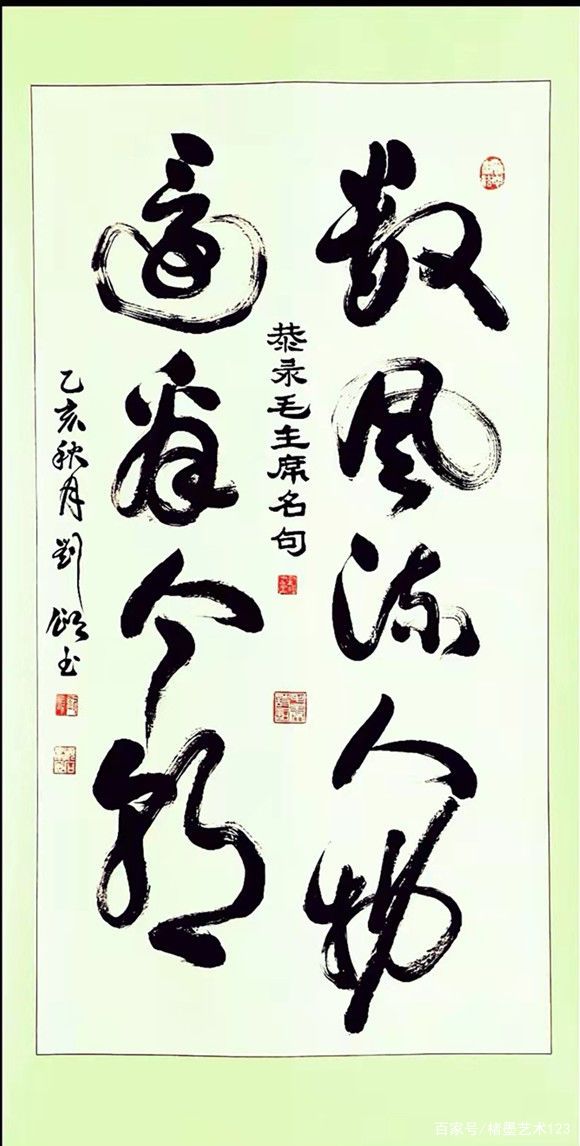 數風流人物
恭录毛主席名句
還看今朝
乙亥秋月劉书
百家号/楮墨艺术123